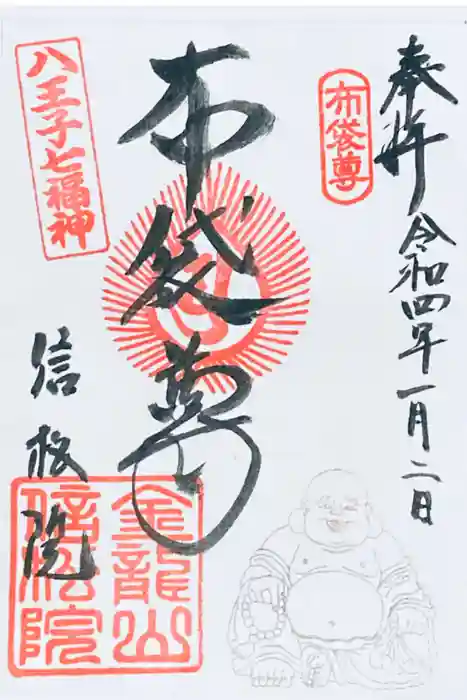 奉拝
令和四年一月二日
布袋尊
布袋尊
八王子七福神
信松院
金龍山
信松院